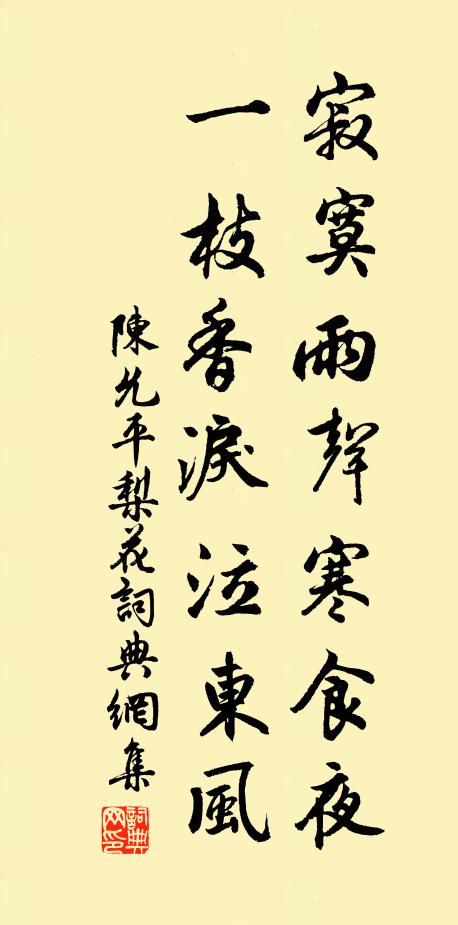 寂寞雨聲寒食夜
一枝香淚泣東風
陳允平梨花詞典網集
詞典
网印